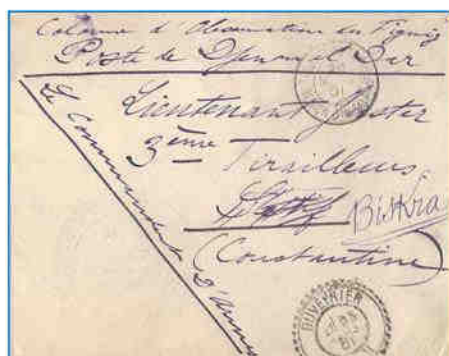 Colonne d'Observation du Figuig
Poste de Djenan el Dar
Lieutenant
3ème Tirailleurs
Biskra
(Constantine)
Le Commandant d'Armes
DUVEYRIER